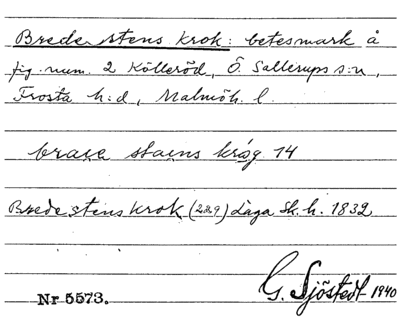 Brede stens krok: betesmark å
fig. num. 2 Kölleröd, Ö. Sallerups s:n,
Frosta h:d, Malmöh. l.
stains 14
Brede stens krok (229) Laga Sk. h. 1832
G. Sjöstedt 1940
Nr 5573.